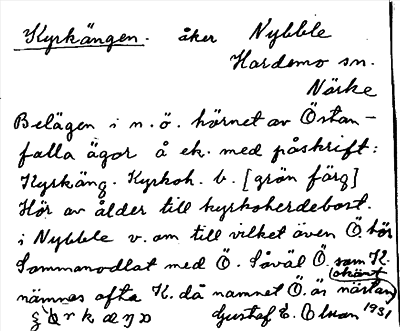 Kyrkängen. åker Nybble
Hardemo sn.
Närke
Belägen i n.ö. hörnet av Östan-
falla ägor å ek. med påskrift:
Kyrkäng. Kyrkoh. b. [grön färg]
Hör av ålder till kyrkoherdebost.
i Nybble v. om till vilket även Ö. hör
Sammanodlat med Ö. Såväl Ö. som K.
nämnes ofta K. då namnet Ö. är nästan okänt
Gustaf E. Olsson 1931